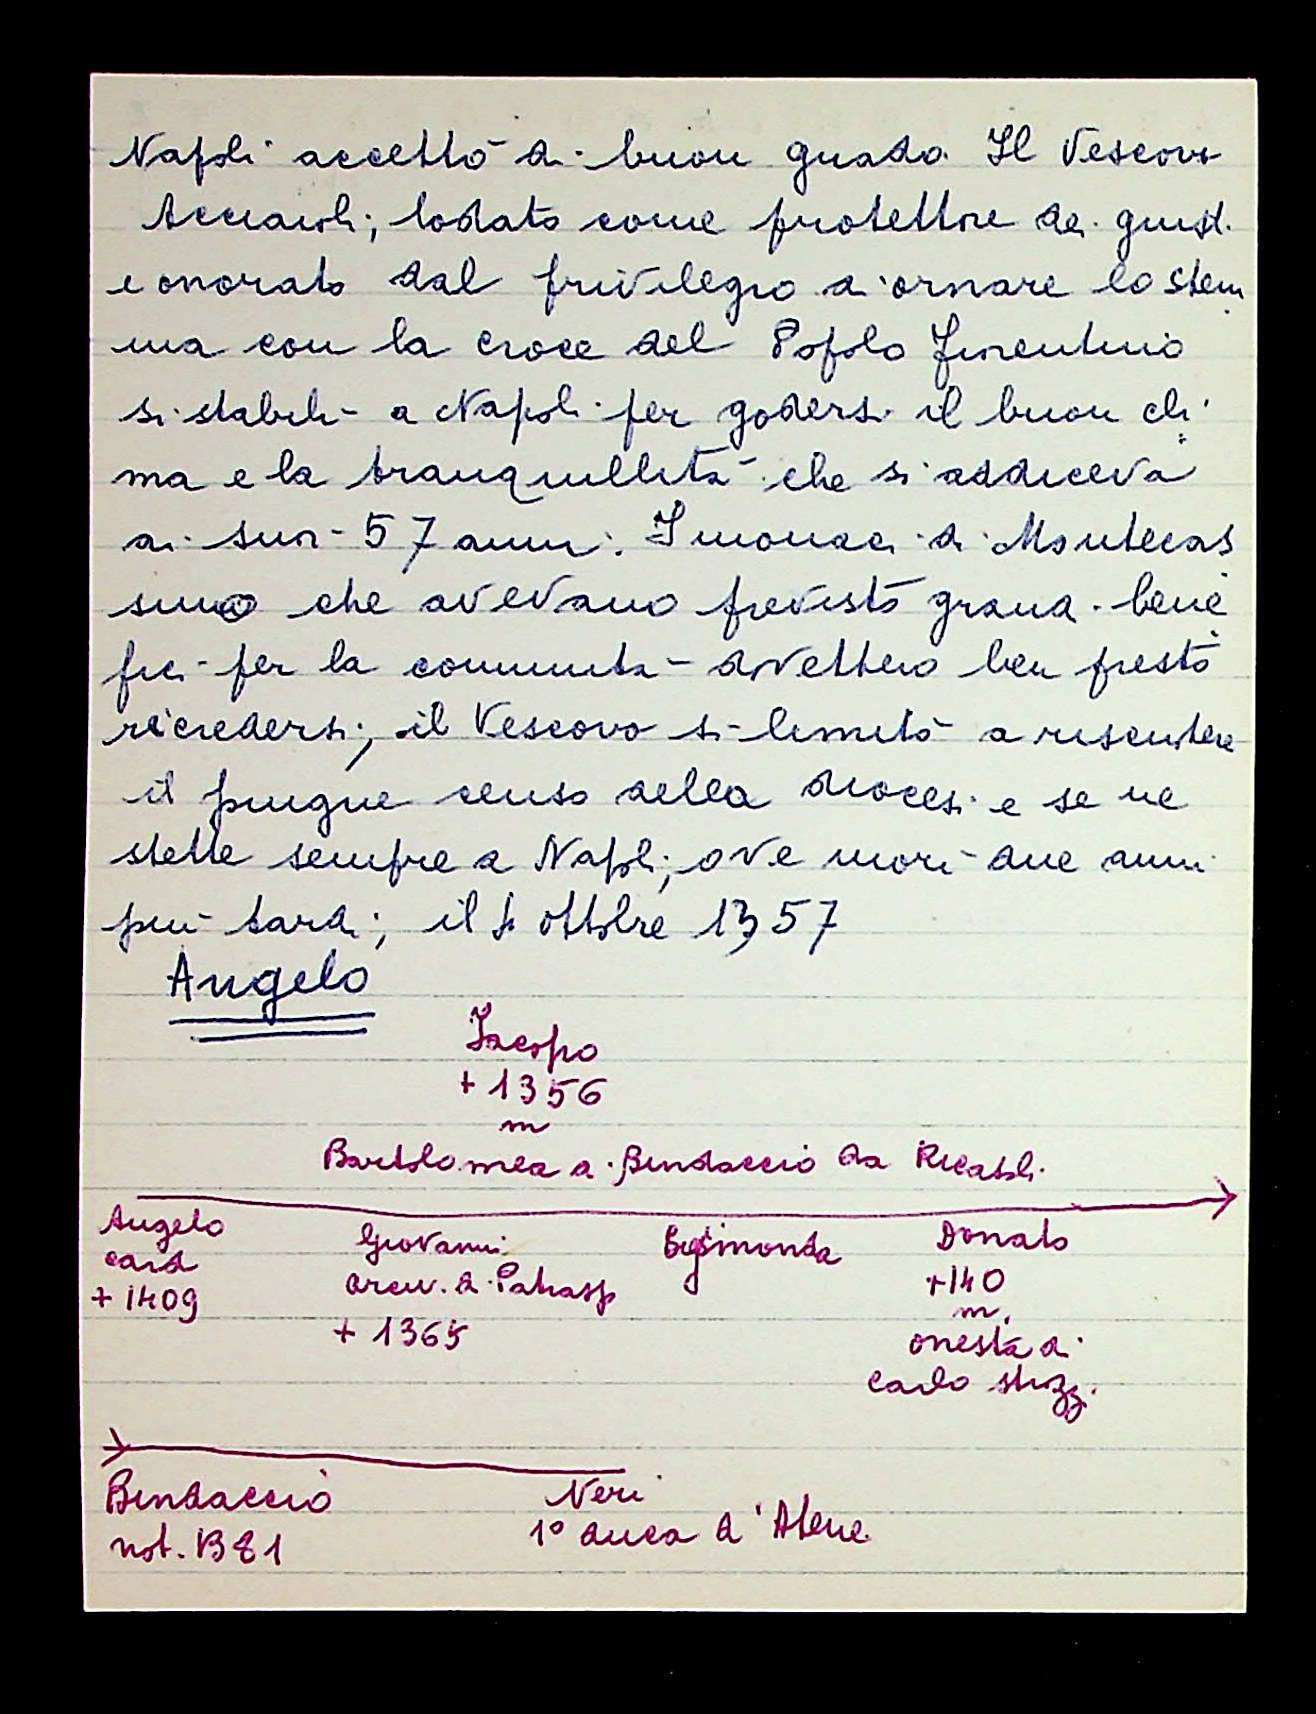 Napoli accettò di buon grado. Il Vescovo
Acciaioli, lodato come protettore dei giusti
e onorato dal privilegio di ornare lo stem
ma con la croce del Popolo fiorentino
si stabilì a Napoli per godersi il buon cli
ma e la tranquillità che si addiceva
ai suoi 57 anni. I monaci di Montecas
sino che avevano previsto grandi bene
fici per la comunità dovettero ben presto
ricredersi, il Vescovo si limitò a riscuotere
il pingue censo della diocesi e se ne
stette sempre a Napoli, ove morì due anni
più tardi, il 4 ottobre 1357
Angelo
Jacopo
+ 1356
m
Bartolomea di Bindaccio da Ricasoli
Angelo
card
+ 1409
Giovanni
arciv. di Patrasso
+ 1365
Sigismonda
Donato
+ 140
m.
onesta di
Carlo Strozzi
Bindaccio
not. 1381
Neri
1° duca d'Atene